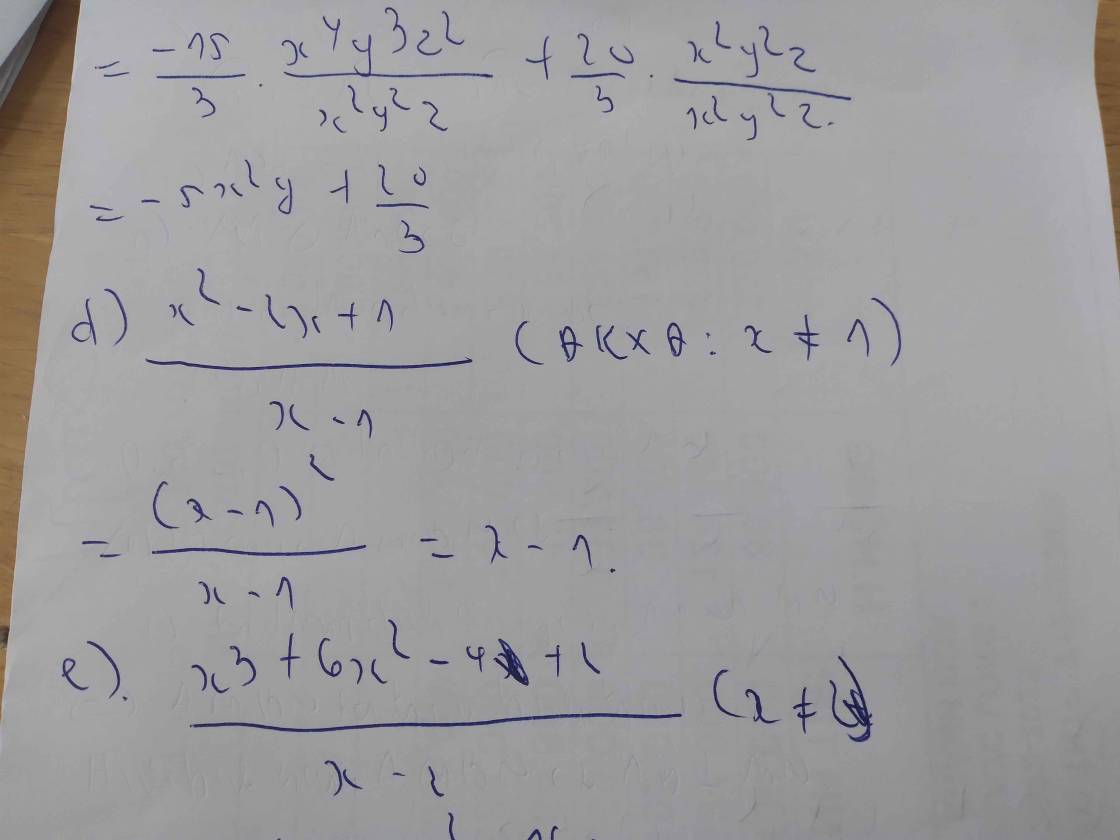 = -15/3 . x^4y^3z^2/x^2y^2z + 20/3 . x^2y^2z/x^2y^2z.
= -5x^2y + 20/3
d) x^2-2x+1/x-1 (ĐKXĐ: x ≠ 1)
= (x-1)^2/x-1 = x-1.
e). x^3+6x^2-4x+2/x-2 (x ≠ 2)